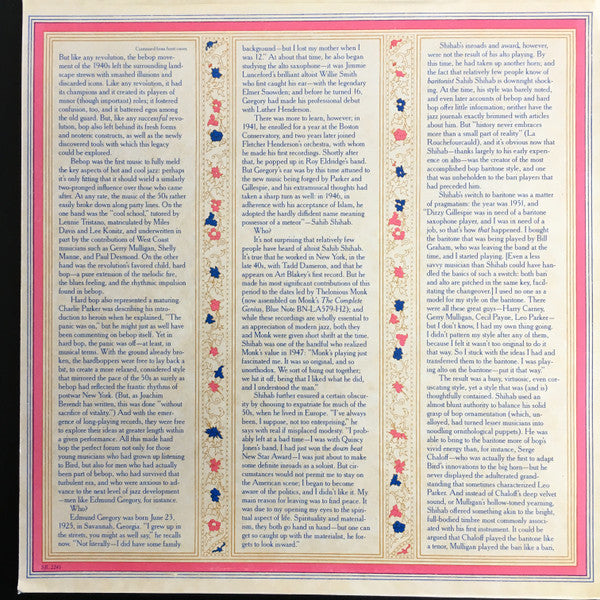 Continued from front cover.
But like any revolution, the bebop move-
ment of the 1940s left the surrounding land-
scape strewn with smashed illusions and
discarded icons. Like any revolution, it had
its champions and it created its players of
minor (though important) roles; it fostered
confusion, too, and it battered egos among
the old guard. But, like any successful revo-
lution, bop also left behind its fresh forms
and neoteric constructs, as well as the newly
discovered tools with which this legacy
could be explored.
Bebop was the first music to fully meld
the key aspects of hot and cool jazz: perhaps
it's only fitting that it should wield a similarly
two-pronged influence over those who came
after. At any rate, the music of the 50s rather
easily broke down along party lines. On the
one hand was the "cool school," tutored by
Lennie Tristano, matriculated by Miles
Davis and Lee Konitz, and underwritten in
part by the contributions of West Coast
musicians such as Gerry Mulligan, Shelly
Manne, and Paul Desmond. On the other
hand was the revolution's favored child, hard
bop—a pure extension of the melodic fire,
the blues feeling, and the rhythmic impulsion
found in bebop.
Hard bop also represented a maturing.
Charlie Parker was describing his intro-
duction to heroin when he explained, "The
panic was on," but he might just as well have
been commenting on bebop itself. Yet in
hard bop, the panic was off—at least, in
musical terms. With the ground already bro-
ken, the hardboppers were free to lay back a
bit, to create a more relaxed, considered style
that mirrored the pace of the 50s as surely as
bebop had reflected the frantic rhythms of
postwar New York. (But, as Joachim
Berendt has written, this was done "without
sacrifice of vitality.") And with the emer-
gence of long-playing records, they were free
to explore their ideas at greater length within
a given performance. All this made hard
bop the perfect forum not only for those
young musicians who had grown up listening
to Bird, but also for men who had actually
been part of bebop, who had survived that
turbulent era, and who were anxious to ad-
vance to the next level of jazz development
—men like Edmund Gregory, for instance.
Who?
Edmund Gregory was born June 23,
1925, in Savannah, Georgia. "I grew up in
the streets, you might as well say," he recalls
now. "Not literally—I did have some family
background—but I lost my mother when I
was 12." At about that time, he also began
studying the alto saxophone—it was Jimmie
Lunceford's brilliant altoist Willie Smith
who first caught his ear—with the legendary
Elmer Snowden; and before he turned 16,
Gregory had made his professional debut
with Luther Henderson.
There was more to learn, however; in
1941, he enrolled for a year at the Boston
Conservatory, and two years later joined
Fletcher Henderson's orchestra, with whom
he made his first recordings. Shortly after
that, he popped up in Roy Eldridge's band.
But Gregory's ear was by this time attuned to
the new music being forged by Parker and
Gillespie, and his extramusical thoughts had
taken a sharp turn as well: in 1946, in
adherence with his acceptance of Islam, he
adopted the hardly diffident name meaning
possessor of a meteor"—Sahib Shihab.
Who?
It's not surprising that relatively few
people have heard of almost Sahib Shihab.
It's true that he worked in New York, in the
late 40s, with Tadd Dameron, and that he
appears on Art Blakey's first record. But he
made his most significant contributions of this
period to the dates led by Thelonious Monk
(now assembled on Monk's The Complete
Genius, Blue Note BN-LA579-H2); and
while these recordings are wholly essential to
an appreciation of modern jazz, both they
and Monk were given short shrift at the time.
Shihab was one of the handful who realized
Monk's value in 1947: "Monk's playing just
fascinated me. It was so original, and so
unorthodox. We sort of hung out together;
we hit it off; being that I liked what he did,
and I understood the man."
Shihab further ensured a certain obscur-
ity by choosing to expatriate for much of the
50s, when he lived in Europe. "I've always
been, I suppose, not too enterprising," he
says with real if misplaced modesty. "I prob-
ably left at a bad time—I was with Quincy
Jones's band, I had just won the down beat
New Star Award—I was just about to make
some definite inroads as a soloist. But cir-
cumstances would not permit me to stay on
the American scene; I began to become
aware of the politics, and I didn't like it. My
main reason for leaving was to find peace. It
was due to my opening my eyes to the spirit-
ual aspect of life. Spirituality and material-
ity, they both go hand in hand—but one can
get so caught up with the materialist, he for-
gets to look inward."
Shihab's inroads and award, however,
were not the result of his alto playing. By this
time, he had taken up another horn; and the
fact that relatively few people know of
baritonist Sahib Shihab is downright shock-
ing. At the time, his style was barely noted,
and even later accounts of bebop and hard
bop offer little information; neither have the
jazz journals exactly brimmed with articles
about him. But "history never embraces
more than a small part of reality" (La
Rochefoucauld), and it's obvious now that
Shihab—thanks largely to his early experi-
ence on alto—was the creator of the most
accomplished bop baritone style, and one
that was unbeholden to the ban players that
had preceded him.
Shihab's switch to baritone was a matter
of pragmatism: the year was 1951, and
Dizzy Gillespie was in need of a baritone
saxophone player, and I was in need of a
job, so that's how that happened. I bought
the baritone that was being played by Bill
Graham, who was leaving the band at the
time, and I started playing. [Even a less
savvy musician than Shihab could have han-
dled the basics of such a switch: both bari
and alto are pitched in the same key, facili-
tating the changeover.] I used no one as a
model for my style on the baritone. There
were all these great guys—Harry Carney,
Gerry Mulligan, Cecil Payne, Leo Parker—
but I don't know, I had my own thing going.
I didn't pattern my style after any of them,
because I felt it wasn't too original to do it
that way. So I stuck with the ideas I had and
transferred them to the baritone. I was play-
ing alto on the baritone—put it that way."
The result was a busy, virtuosic, even cor-
uscating style, yet a style that was (and is)
thoughtfully contained. Shihab used an
almost blunt authority to balance his solid
grasp of bop ornamentation (which, un-
alloyed, had turned lesser musicians into
noodling ornithological puppets). He was
able to bring to the baritone more of bop's
vivid energy than, for instance, Serge
Chaloff—who was actually the first to adapt
Bird's innovations to the big horn—but he
never displayed the adulterated grand-
standing that sometimes characterized Leo
Parker. And instead of Chaloff's deep velvet
sound, or Mulligan's hollow-toned yearning,
Shihab offered something akin to the bright,
full-bodied timbre most commonly associ-
ated with his first instrument. It could be
argued that Chaloff played the baritone like
a tenor, Mulligan played the bari like a bari,
SJL 2245